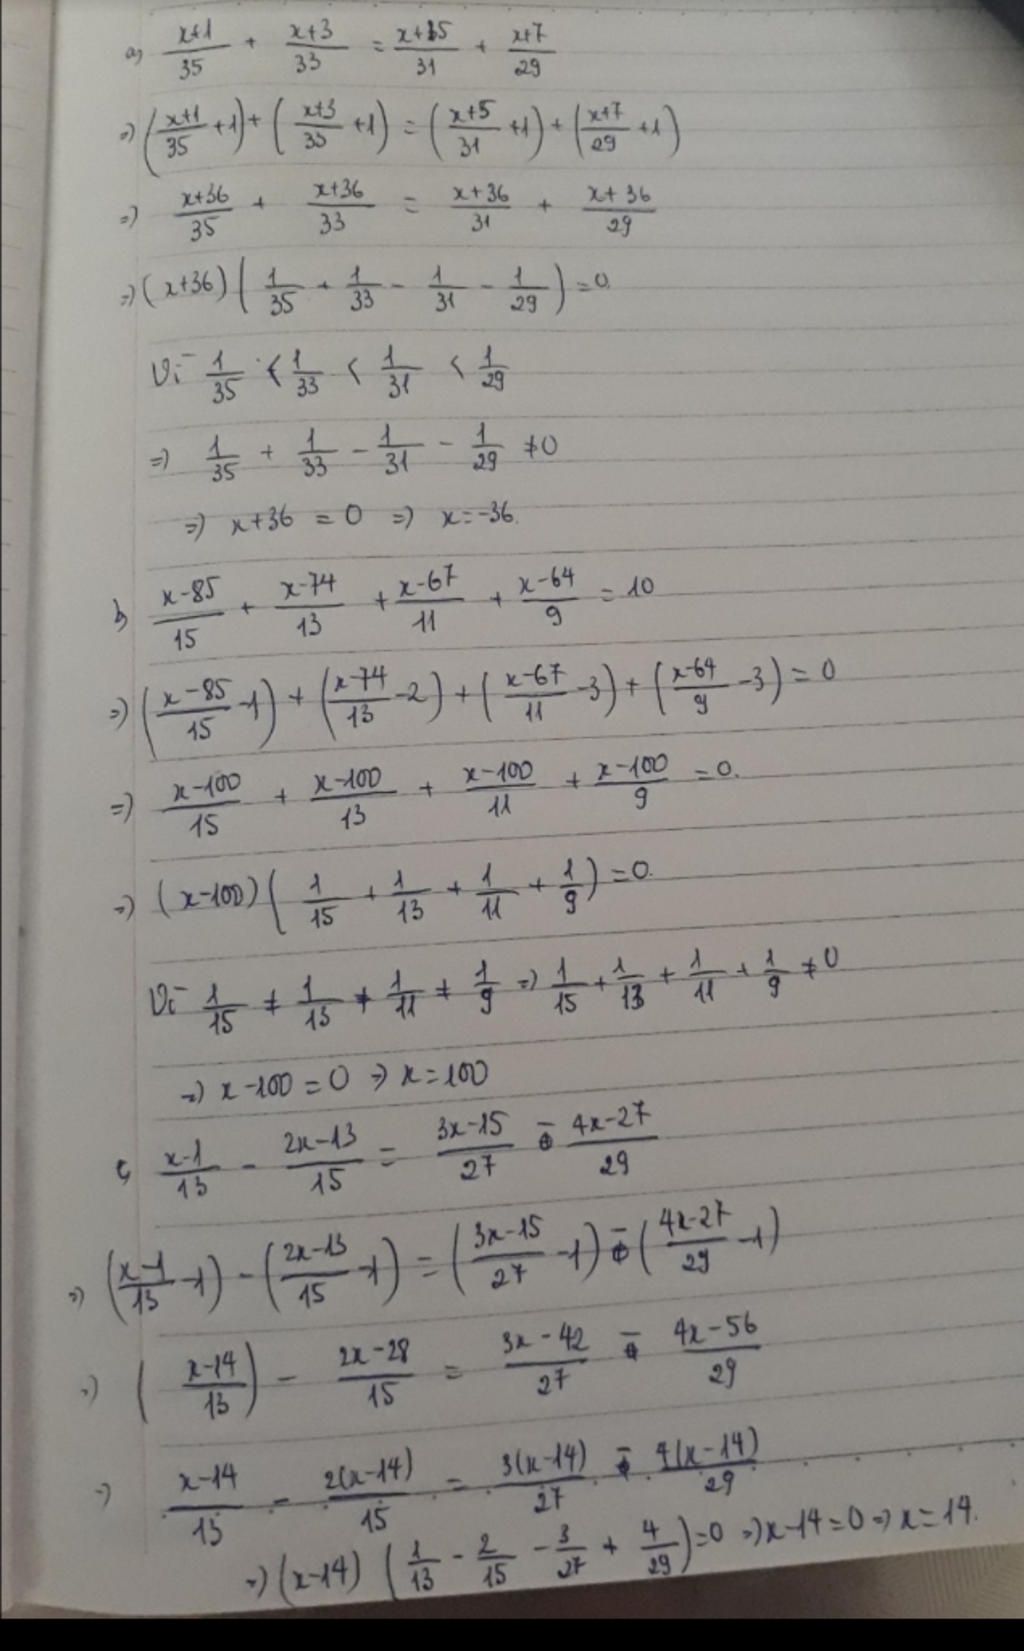 a, (x+1)/35 + (x+3)/33 = (x+5)/31 + (x+7)/29
=) ((x+1)/35 +1) + ((x+3)/33 +1) = ((x+5)/31 +1) + ((x+7)/29 +1)
=) (x+36)/35 + (x+36)/33 = (x+36)/31 + (x+36)/29
=) (x+36) (1/35 + 1/33 - 1/31 - 1/29) = 0.
Vì 1/35 < 1/33 < 1/31 < 1/29
=) 1/35 + 1/33 - 1/31 - 1/29 ≠ 0
=) x+36 = 0 =) x = -36.
b, (x-85)/15 + (x-74)/13 + (x-67)/11 + (x-64)/9 = 10
=) ((x-85)/15 -1) + ((x-74)/13 -2) + ((x-67)/11 -3) + ((x-64)/9 -3) = 0
=) (x-100)/15 + (x-100)/13 + (x-100)/11 + (x-100)/9 = 0.
=) (x-100) (1/15 + 1/13 + 1/11 + 1/9) = 0.
Vì 1/15 ≠ 1/13 ≠ 1/11 ≠ 1/9 =) 1/15 + 1/13 + 1/11 + 1/9 ≠ 0
=) x-100 = 0 =) x = 100
c, (x-1)/13 - (2x-13)/15 = (3x-15)/27 - (4x-27)/29
=) ((x-1)/13 -1) - ((2x-13)/15 -1) = ((3x-15)/27 -1) - ((4x-27)/29 -1)
=) ((x-14)/13) - (2x-28)/15 = (3x-42)/27 - (4x-56)/29
=) (x-14)/13 - 2(x-14)/15 = 3(x-14)/27 - 4(x-14)/29
=) (x-14) (1/13 - 2/15 - 3/27 + 4/29) = 0 =) x-14 = 0 =) x = 14.